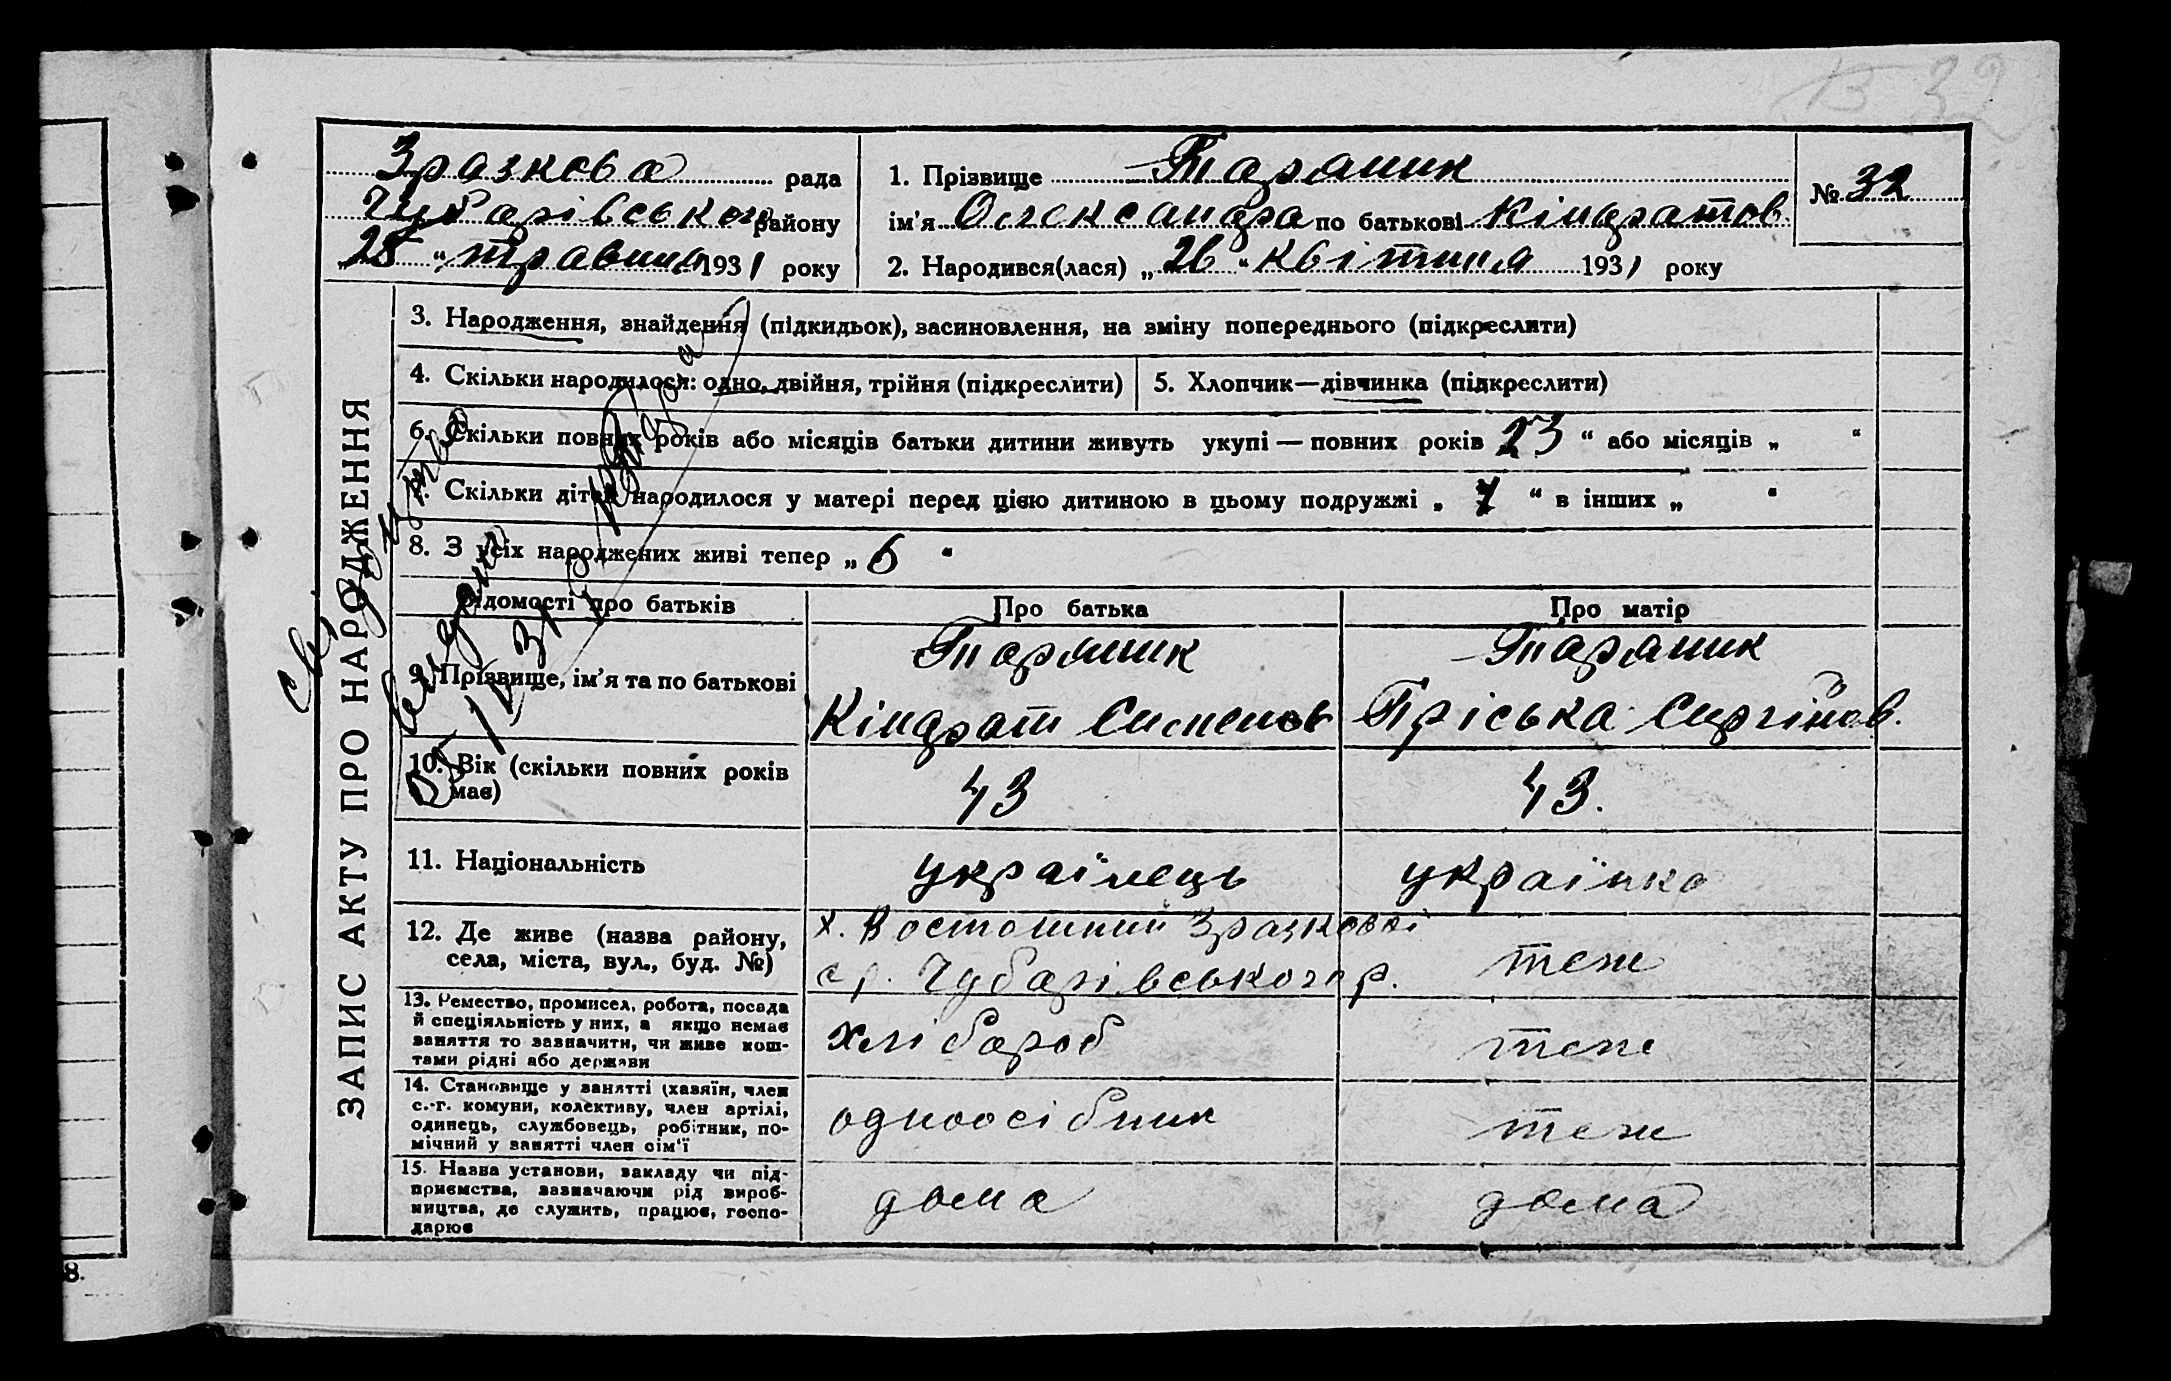 В 32
Зразкова рада
Чубарівського району
„25“ травня 1931 року
1. Прізвище Тараник
ім'я Олександра по батькові Кіндратов.
2. Народився(лася) „26“ квітня 1931 року
№ 32
ЗАПИС АКТУ ПРО НАРОДЖЕННЯ
3. Народження, знайдення (підкидьок), засиновлення, на зміну попереднього (підкреслити)
4. Скільки народилося: одно, двійня, трійня (підкреслити)
5. Хлопчик—дівчинка (підкреслити)
6. Скільки повних років або місяців батьки дитини живуть укупі — повних років 23 “ або місяців „ “
7. Скільки дітей народилося у матері перед цією дитиною в цьому подружжі „ 7 “ в інших „ “
8. З усіх народжених живі тепер „ 6 “
Відомості про батьків
Про батька
Про матір
9. Прізвище, ім'я та по батькові
Тараник
Кіндрат Сименов
Тараник
Пріська Сиргійов.
10. Вік (скільки повних років має)
43
43.
11. Національність
українець
українка
12. Де живе (назва району,
села, міста, вул., буд. №)
х. Восточний Зразкової
с/р. Чубарівського р.
теж
13. Ремество, промисел, робота, посада
й спеціяльність у них, а якщо немає
заняття то зазначити, чи живе кош-
тами рідні або держави
хлібароб
теж
14. Становище у занятті (хазяїн, член
с.-г. комуни, колективу, член артілі,
одинець, службовець, робітник, по-
мічний у занятті член сім'ї
одноосібник
теж
15. Назва установи, закладу чи під-
приємства, зазначаючи рід вироб-
ництва, де служить, працює, госпо-
дарює
дома
дома
видано
8.